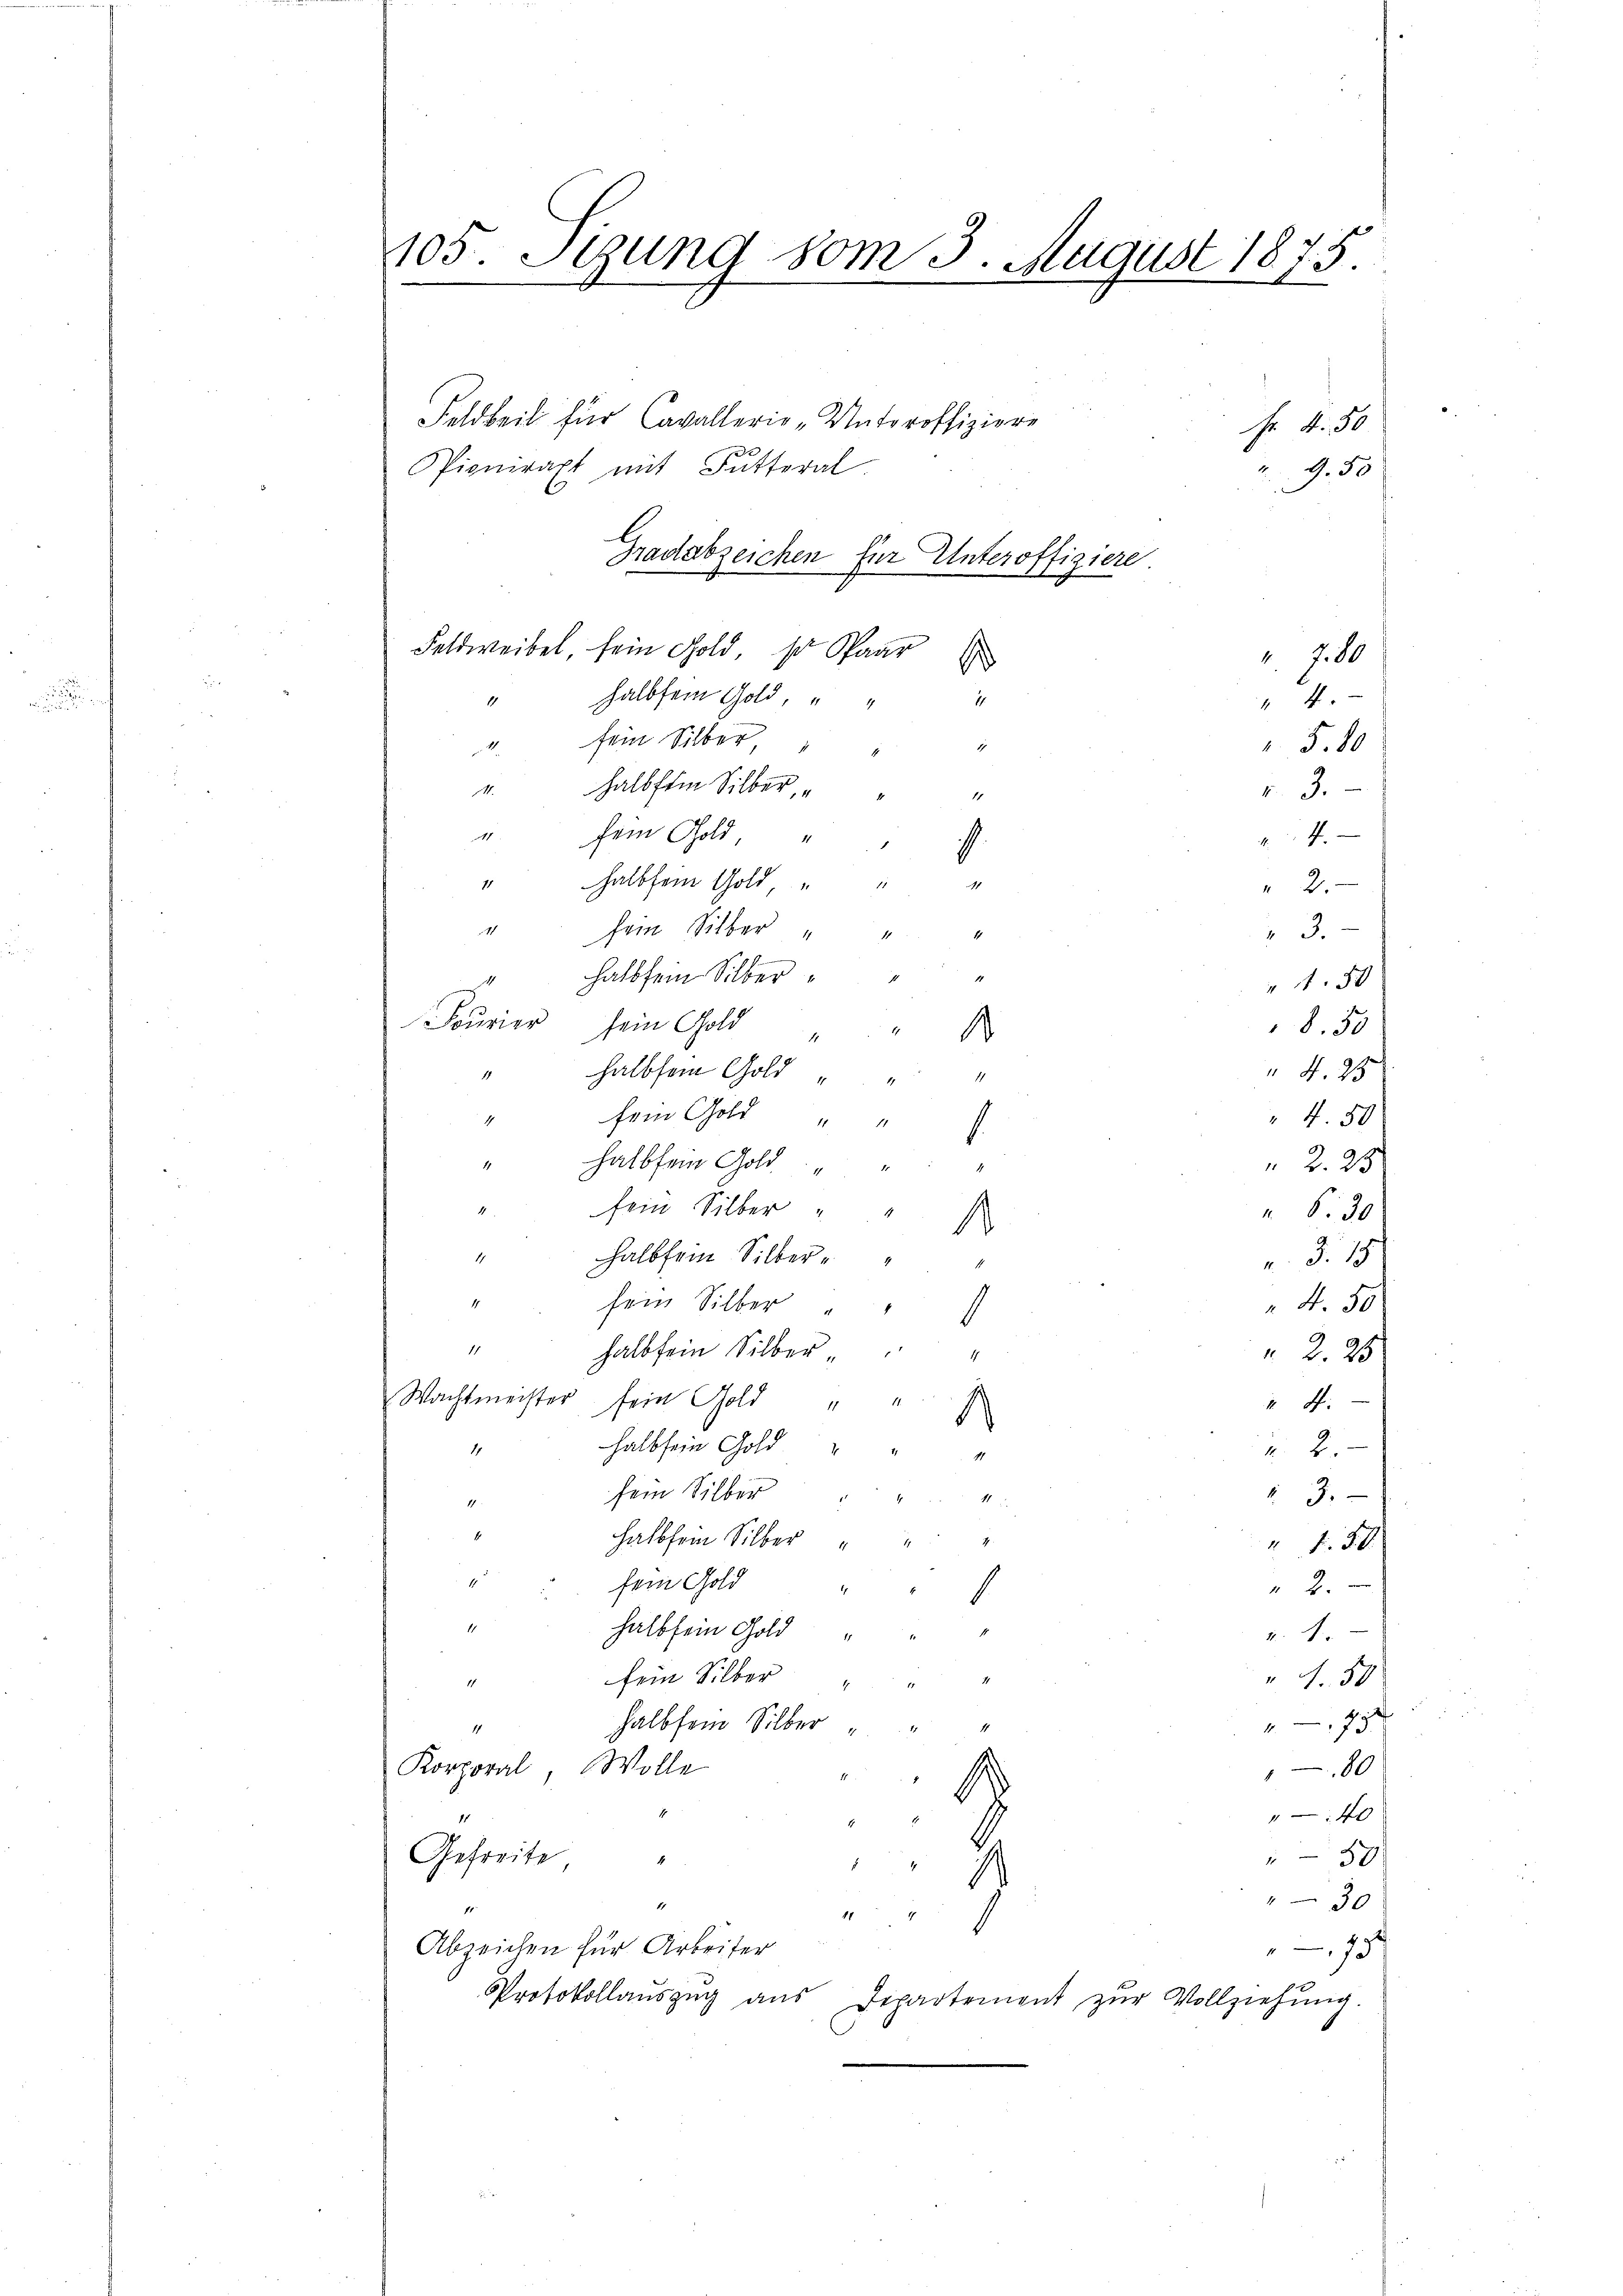 105. Sizung vom 3. August 1875.
Feldbeil für Cavallerie-Unteroffiziere fr. 4.50
Pionieraxt mit Futteral. " 9.50
Gradabzeichen für Unteroffiziere.
Feldweibel, fein Gold, pr Paar " 7.80
" halbfein Gold, " " " " 4.-
" fein Silber, " " " " 5.80
" halbfein Silber, " " " " 3.-
" fein Gold, " " " 4.-
" halbfein Gold, " " " " 2.-
" fein Silber " " " " 3.-
" halbfein Silber " " " " 1.50
Fourier fein Gold " " " 8.50
" halbfein Gold " " " " 4.25
" fein Gold " " " 4.50
" halbfein Gold " " " " 2.25
" fein Silber " " " 6.30
" halbfein Silber " " " " 3.15
" fein Silber " " " 4.50
" halbfein Silber " " " " 2.25
Wachtmeister fein Gold " " " 4.-
" halbfein Gold " " " " 2.-
" fein Silber " " " " 3.-
" halbfein Silber " " " " 1.50
" fein Gold " " " 2.-
" halbfein Gold " " " " 1.-
" fein Silber " " " " 1.50
" halbfein Silber " " " " -.75
Korporal, Wolle " " " -.80
" " " " " -.40
Gefreite, " " " " - 50
" " " " " - 30
Abzeichen für Arbeiter " -.75
Protokollauszug ans Departement zur Vollziehung.